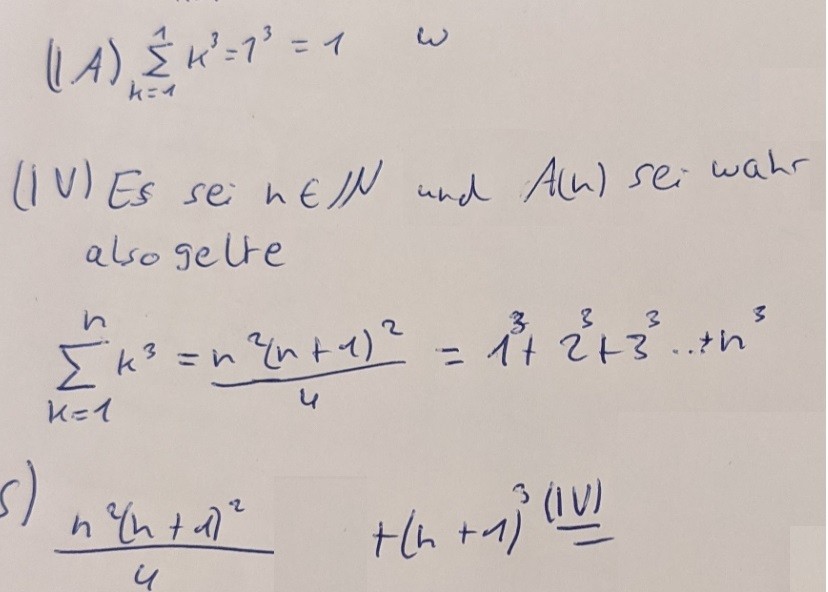 (IA) ∑_{k=1}^{1} k³ = 1³ = 1 w
(IV) Es sei n ∈ ℕ und A(n) sei wahr
also gelte
∑_{k=1}^{n} k³ = n²(n+1)²/4 = 1³ + 2³ + 3³ ..+ n³
S) n²(n+1)²/4 + (n+1)³ (IV) =